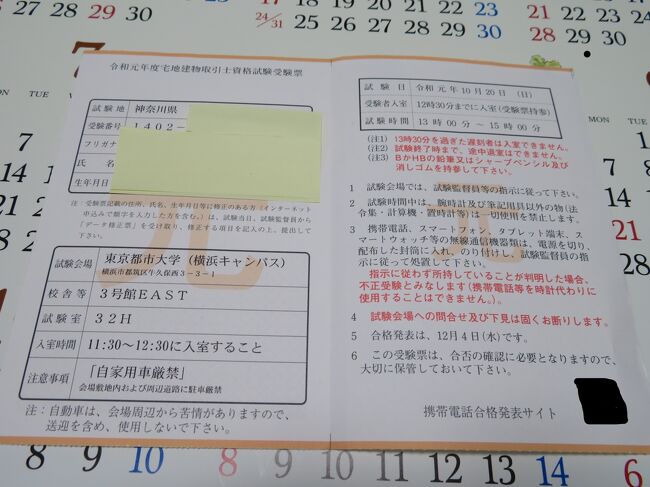 令和元年度宅地建物取引士資格試験受験票
試験地 神奈川県
受験番号 1402-
フリガナ
氏名
生年月日
注：受験票記載の住所、氏名、生年月日等に修正のある方（インターネット
申込みで簡字を入力した方を含む。）は、試験当日、試験監督員から
「データ修正票」を受け取り、修正する項目を記入の上、提出して
下さい。
試験会場 東京都市大学（横浜キャンパス）
横浜市都筑区牛久保西3-3-1
校舎等 3号館EAST
試験室 32H
入室時間 11:30～12:30に入室すること
注意事項 「自家用車厳禁」
会場敷地内および周辺道路に駐車厳禁
注：自動車は、会場周辺から苦情がありますので、
送迎を含め、使用しないで下さい。
試験日 令和元年10月20日（日）
受験者入室 12時30分までに入室（受験票持参）
試験時間 13時00分～15時00分
(注1) 13時30分を過ぎた遅刻者は入室できません。
(注2) 試験終了時まで、途中退室はできません。
(注3) BかHBの鉛筆又はシャープペンシル及び
消しゴムを持参して下さい。
1 試験会場では、試験監督員等の指示に従って下さい。
2 試験時間中は、腕時計及び筆記用具以外の物（法
令集・計算機・置時計等）は一切使用を禁止します。
3 携帯電話、スマートフォン、タブレット端末、ス
マートウォッチ等の無線通信機器類は、電源を切り、
配布した封筒に入れ、のり付けし、試験監督員の指
示に従って処置して下さい。
指示に従わず所持していることが判明した場合、
不正受験とみなします（携帯電話等を時計代わりに
使用することはできません。）。
4 試験会場への問合せ及び下見は固くお断りします。
5 合格発表は、12月4日（水）です。
6 この受験票は、合否の確認に必要となりますので、
大切に保管しておいて下さい。
携帯電話合格発表サイト
8 9 10 8 9 10 11 12 13 14 6